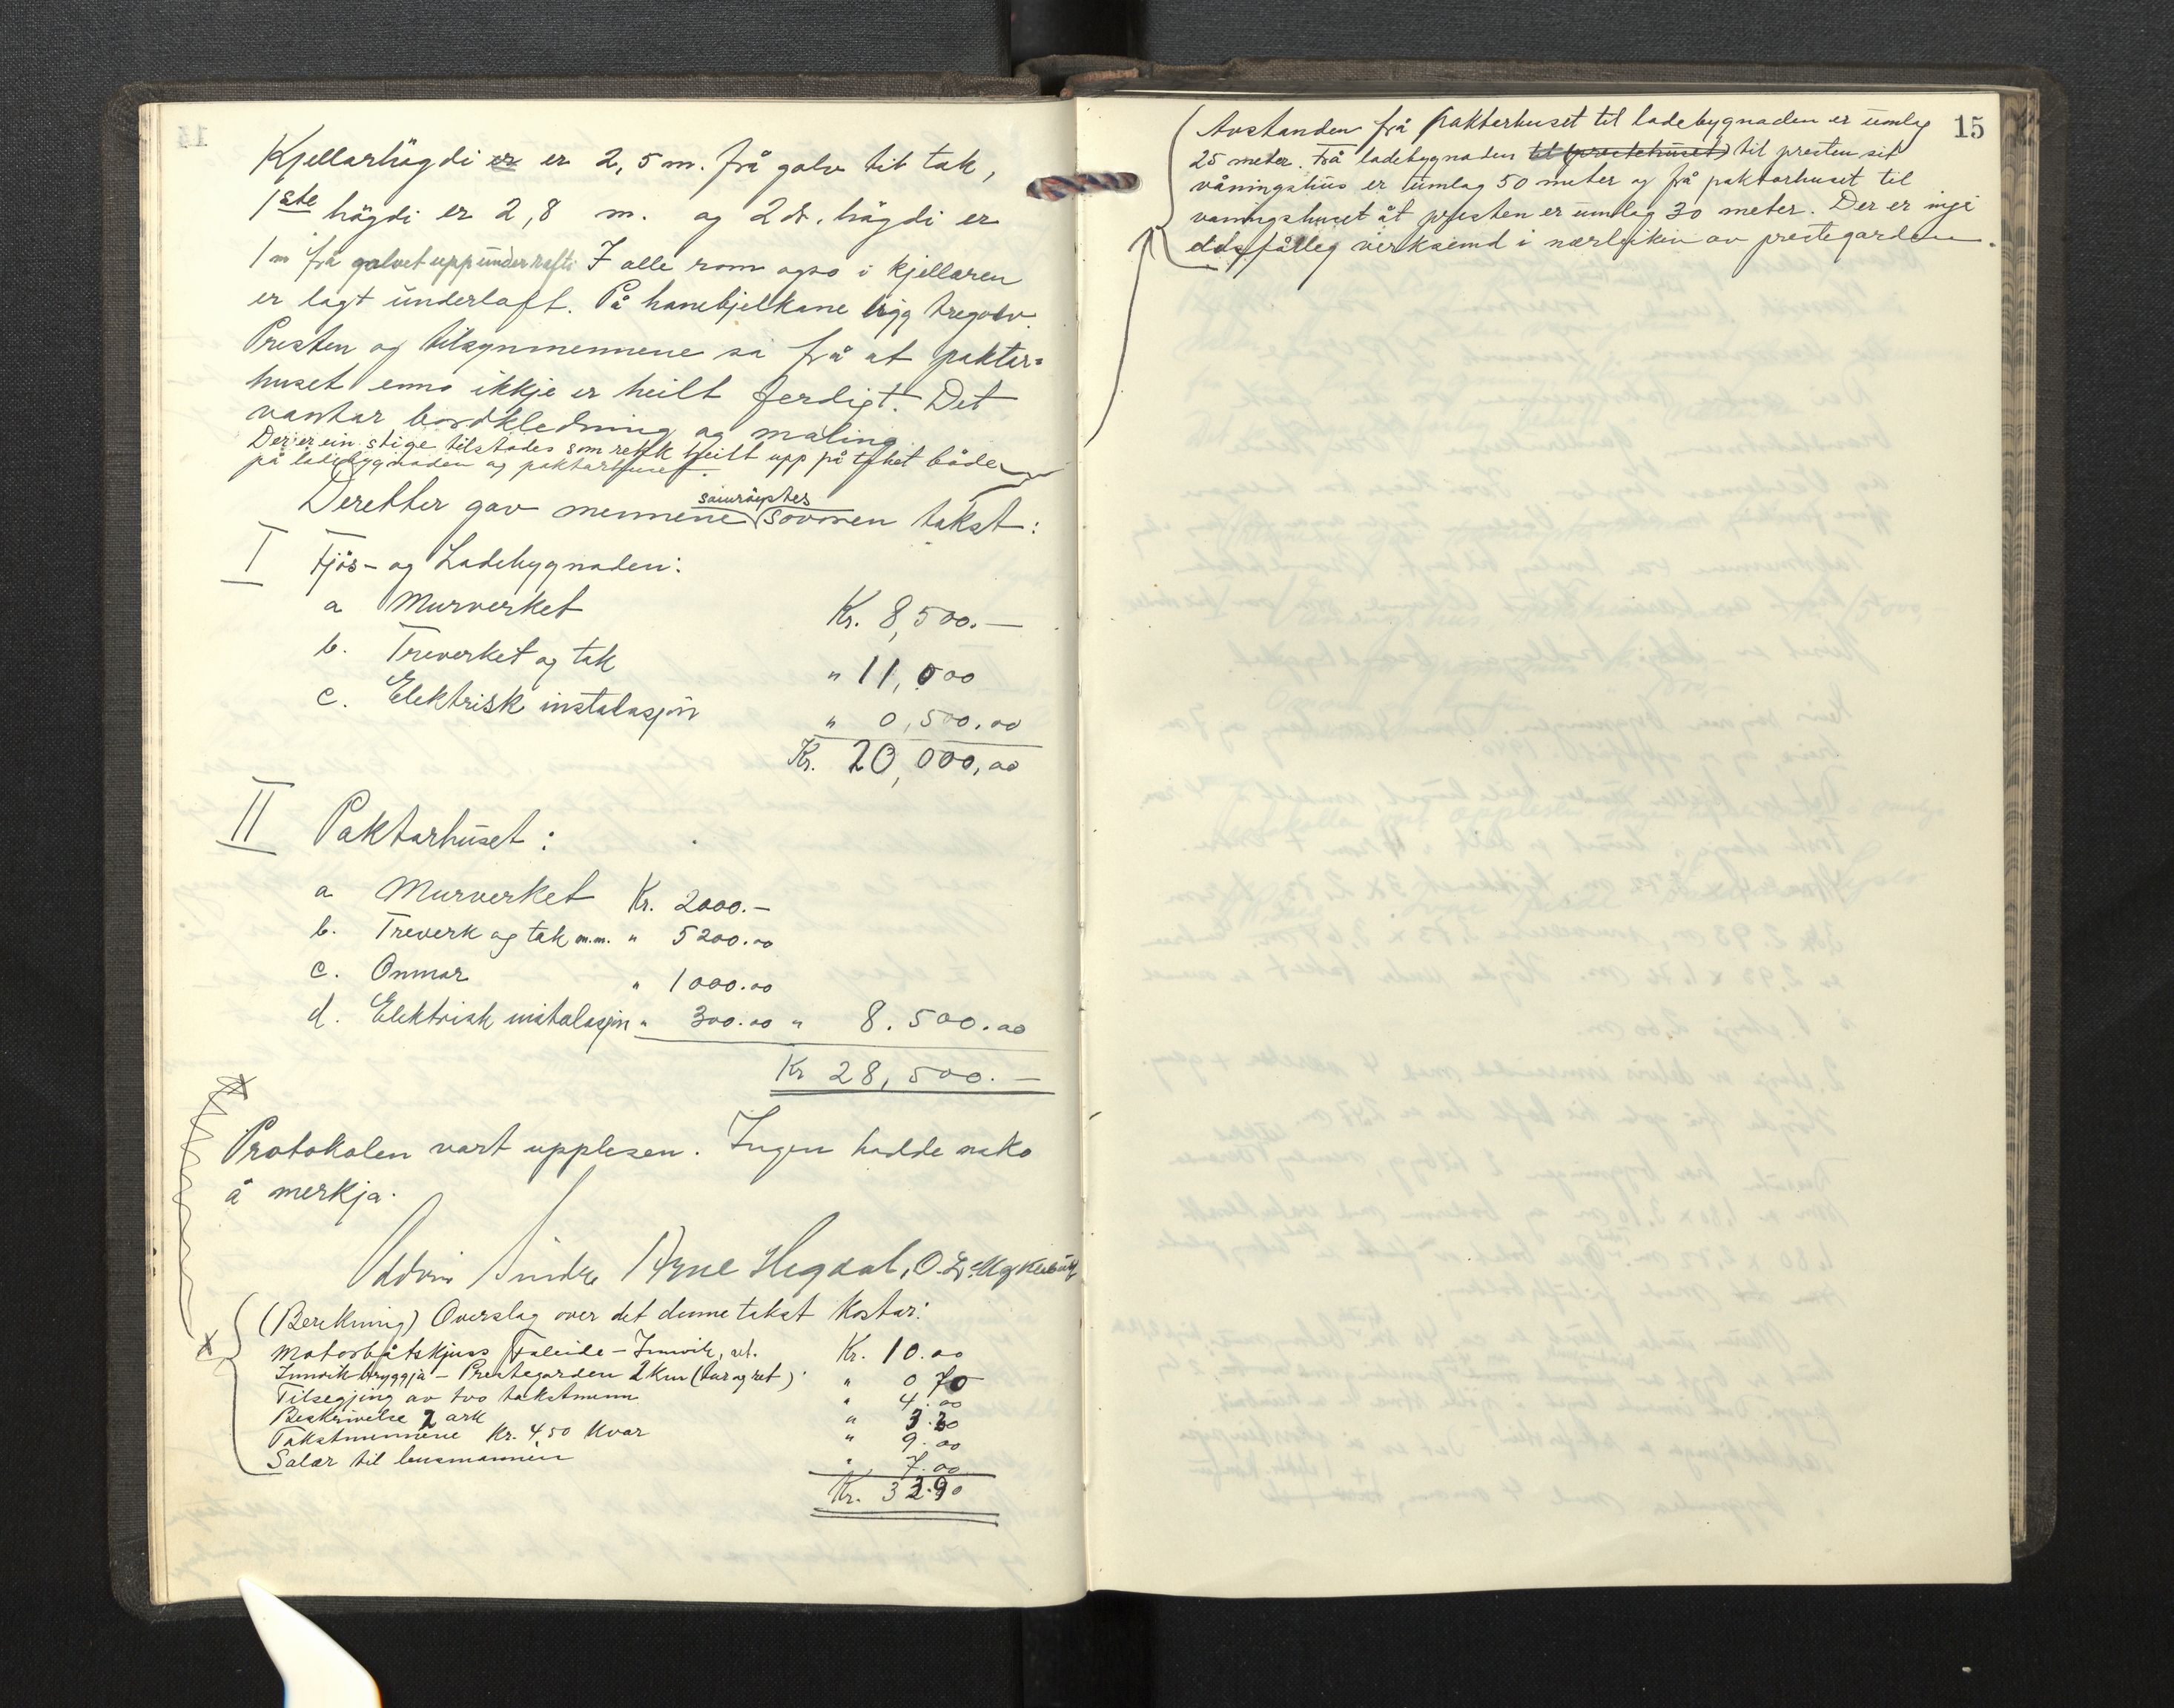 Kjellarhögdi er er 2,5 m. frå golv til tak,
1ste högdi er 2,8 m. og 2dr. högdi er
1 m frå golvet upp under rafti I alle rom ogso i kjellaren
er lagt underloft. På hanebjelkane ligg tregolv.
Presten og tilsynmennene sa frå at paktar=
huset enno ikkje er heilt ferdigt. Det
vantar bordkledning og maling.
Der er ein stige tilstades som rekk heilt upp på taket både
på ladebygnaden og paktarhuset.
samröystes
Deretter gav mennene sovoren takst:
I Fjös- og Ladebygnaden:
a Murverket Kr. 8,500.—
b. Treverket og tak " 11,000
c. Elektrisk instalasjon " 0,500.00
Kr. 20,000,00
II Paktarhuset:
a Murverket Kr. 2000.—
b. Treverk og tak m.m. " 5200.00
c. Omnar " 1000.00
d. Elektrisk instalasjon " 300.00 " 8.500.00
Kr 28,500.—
Protokolen vart upplesen. Ingen hadde noko
å merkja.
Arne Hegdal, O. L.
(Berekning) Overslag over det denne takst kostar:
Motorbåtskjuss Faleide – Innvik, ret. Kr. 10.00
Innvik bryggja – Prestegarden 2 km (tur og ret) " 0 70
Tilsegjing av tvo takstmenn " 4.00
Beskrivelse 2 ark " 3.20
Takstmennene Kr. 4 50 kvar " 9.00
Salær til lensmannen " 7.00
Kr. 33.90
15
(Avstanden frå paktarhuset til ladebygnaden er umlag
25 meter. Frå ladebygnaden til (prestehuset) til presten sit
våningshus er umlag 50 meter og frå paktarhuset til
våningshuset åt presten er umlag 30 meter. Der er ingi
eldsfårleg verksemd i nærleiken av prestegarden.